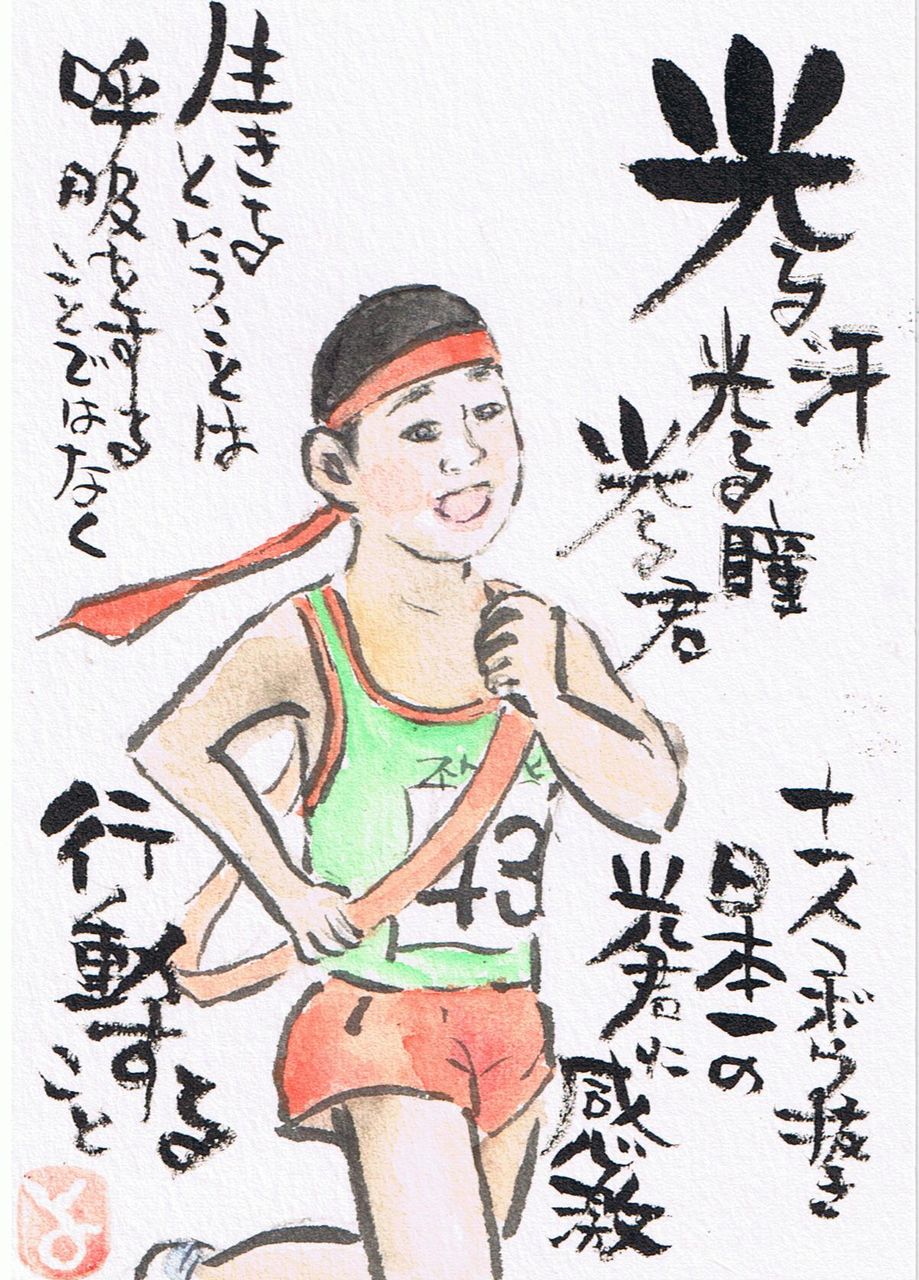 光る汗
光る瞳
光る君
十一人ごぼう抜き
日本一の
光君に
感激
生きる
ということは
呼服をする
ことではなく
行動する
こと
43